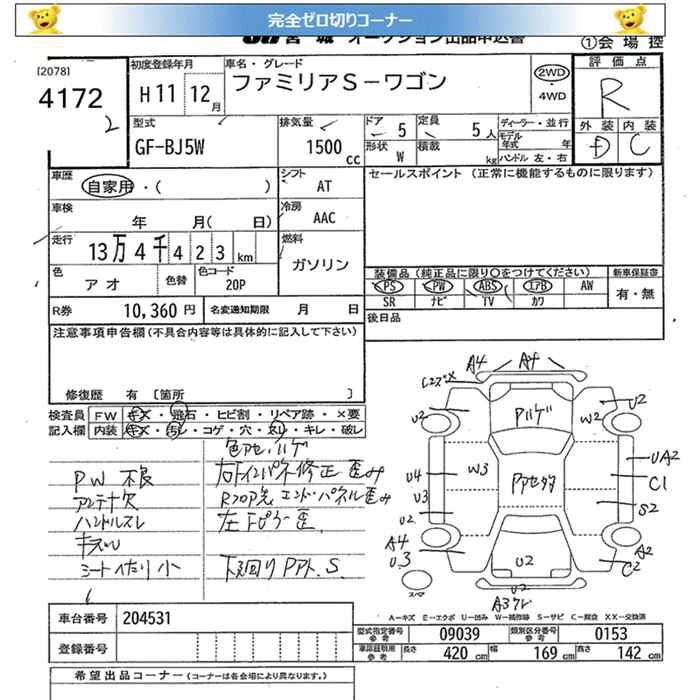 完全ゼロ切りコーナー
JU 宮城 オークション出品申込書 ①会場控
[2078]
4172
2
初度登録年月 H11 12月
車名・グレード ファミリアS－ワゴン
2WD ・ 4WD
評価点 R
外装 内装
D C
型式 GF-BJ5W
排気量 1500 cc
ドア 5
定員 5人
形状 W
積載 kg
ディーラー・並行
モデル年式 年
ハンドル 左・右
車歴 自家用・( )
シフト AT
セールスポイント (正常に機能するものに限ります)
車検 年 月( 日)
冷房 AAC
走行 13万4千423 km
燃料 ガソリン
色 アオ
色替
色コード 20P
装備品 (純正品に限り〇をつけてください)
新車保証書 有・無
PS PW ABS エアB AW
SR ナビ TV カワ
R券 10,360円
名変通知期限 月 日
後日品
注意事項申告欄(不具合内容等は具体的に記入して下さい)
修復歴 有 [箇所 ]
検査員記入欄
FW キズ・飛石・ヒビ割・リペア跡・×要
内装 キズ・汚レ・コゲ・穴・スレ・キレ・破レ
色アセ、ハゲ
PW 不良
右Fインパネ修正歪み
アンテナ欠
Rフロア先 エンドパネル歪み
ハンドルスレ
左Fピラー歪
キズU
シートへたり 小
下廻りPアト、S
A4 A4
コスズ×
U2 Pハゲ U2
W2
UA2
U4 W3 Pアセ多 C1
U3 S2
U2
A4 A2
U3 U2 C2
スペア
U2
A3ワレ
A－キズ E－エクボ U－凹み W－補修跡 S－サビ C－腐食 XX－交換済
車台番号 204531
登録番号
型式指定番号 参考 09039
類別区分番号 参考 0153
車庫証明用 参考 長さ 420 cm 幅 169 cm 高さ 142 cm
希望出品コーナー (コーナーは各会場により異なります。)